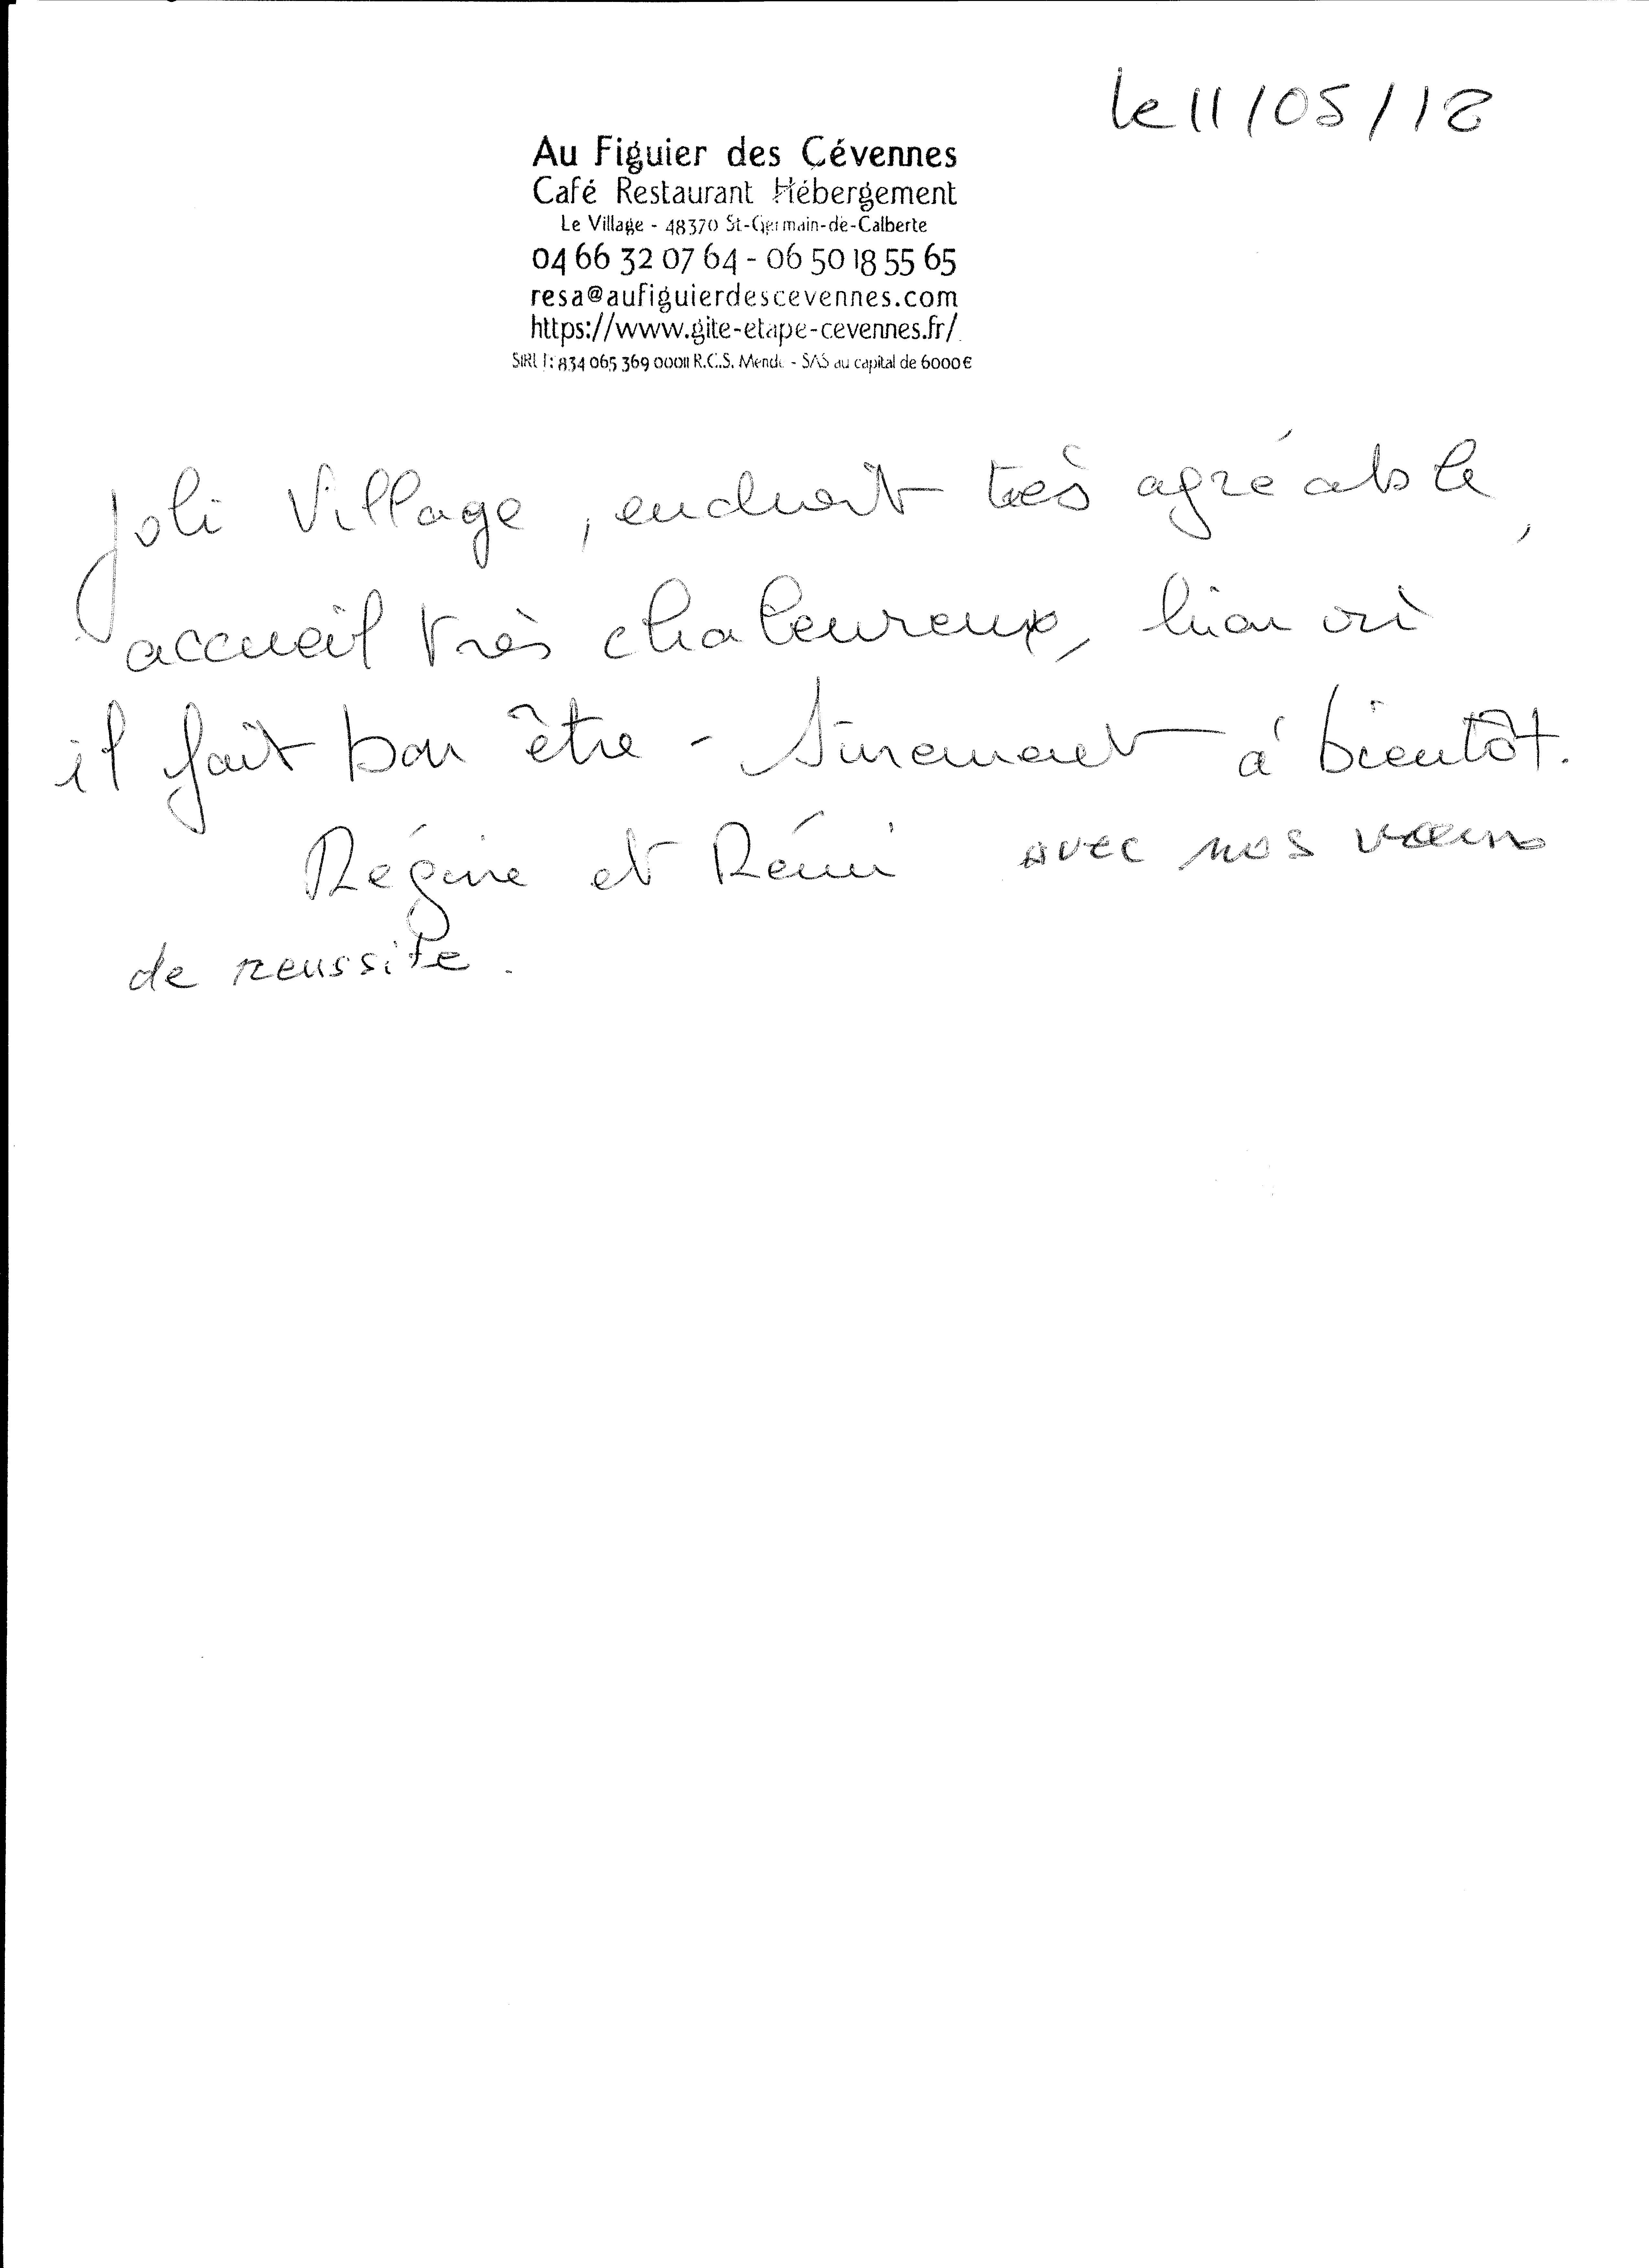 le 11/05/18
Au Figuier des Cévennes
Café Restaurant Hébergement
Le Village - 48370 St-Germain-de-Calberte
04 66 32 07 64 - 06 50 18 55 65
resa@aufiguierdescevennes.com
https://www.gite-etape-cevennes.fr/
SIRET: 834 065 369 00011 R.C.S. Mende - SAS au capital de 6000€
Joli Village, endroit très agréable,
accueil très chaleureux, où
il fait bon être - Surement à bientôt.
Régine et Rémi avec nos vœux
de reussite.